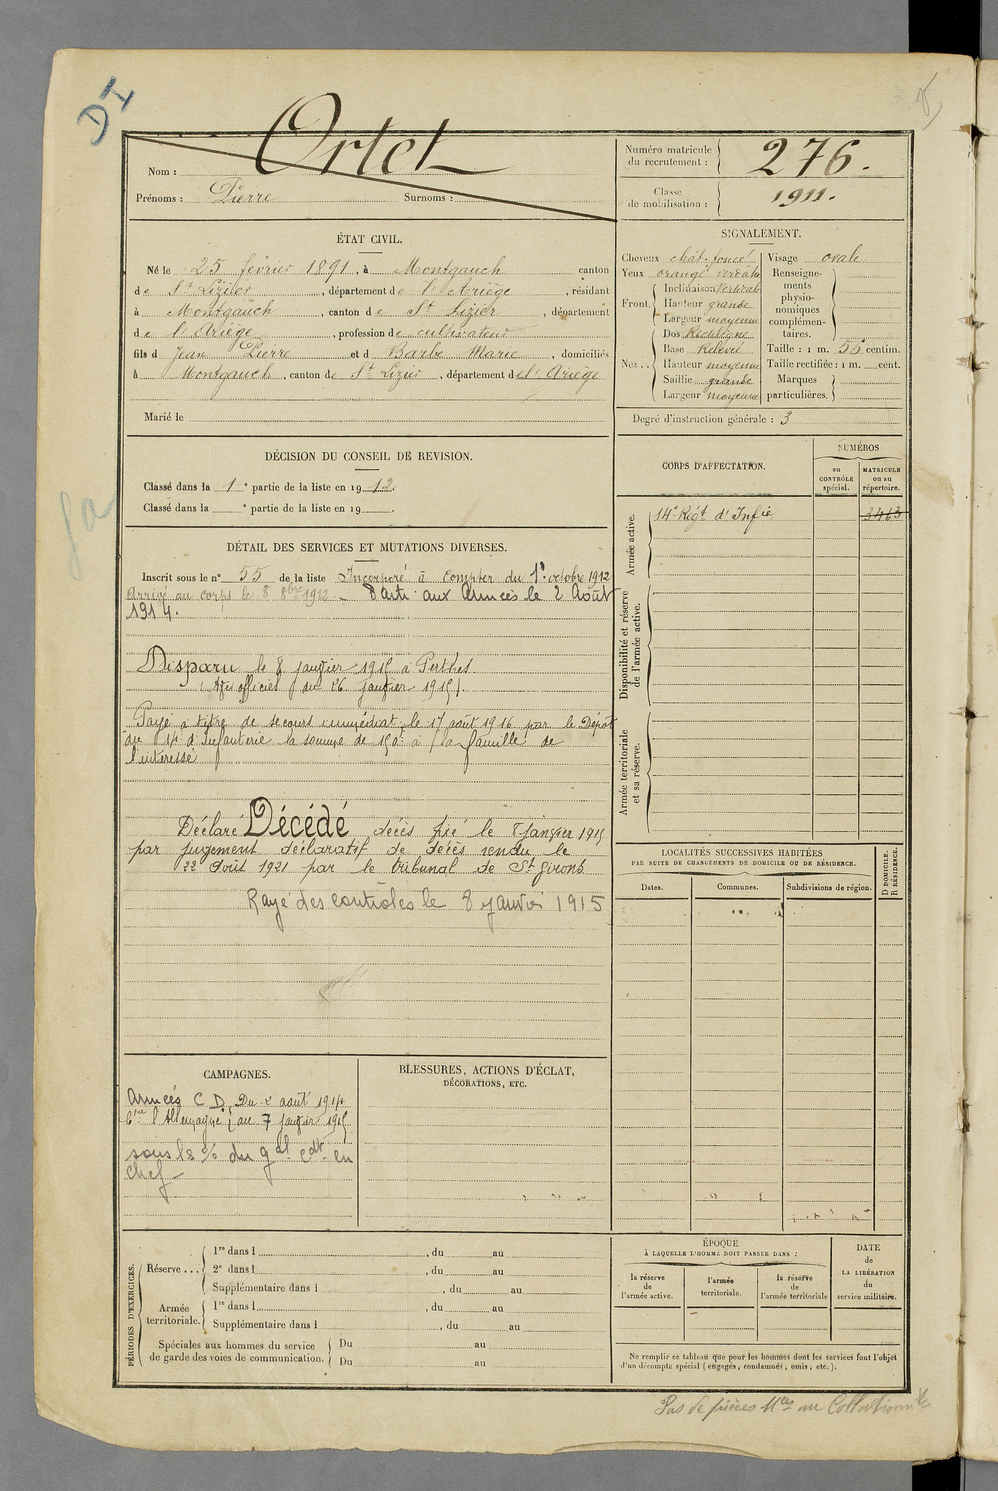 DI
Nom : Ortet
Prénoms : Pierre Surnoms :
Numéro matricule du recrutement : 276.
Classe de mobilisation : 1911.
ÉTAT CIVIL.
Né le 25 février 1891, à Montgauch canton
de St Lizier, département de l'Ariège, résidant
à Montgauch, canton de St Lizier, département
de l'Ariège, profession de cultivateur
fils d Jean Pierre et d Barbe Marie, domiciliés
à Montgauch, canton de St Lizier, département de l'Ariège
Marié le
SIGNALEMENT.
Cheveux chât. foncé
Yeux orangé verdatre
Front. Inclinaison Verticale
Hauteur grande
Largeur moyenne
Nez.. Dos Rectiligne
Base Relevée
Hauteur moyenne
Saillie grande
Largeur moyenne
Visage ovale
Renseignements physionomiques complémentaires.
Taille : 1 m. 56 centim.
Taille rectifiée : 1 m. cent.
Marques particulières.
Degré d'instruction générale : 3
DÉCISION DU CONSEIL DE REVISION.
Classé dans la 1e partie de la liste en 1912.
Classé dans la e partie de la liste en 19 .
CORPS D'AFFECTATION.
NUMÉROS
au CONTRÔLE spécial.
MATRICULE ou au répertoire.
Armée active.
14e Regt d'Infie 3463
Disponibilité et réserve de l'armée active.
Armée territoriale et sa réserve.
DÉTAIL DES SERVICES ET MUTATIONS DIVERSES.
Inscrit sous le n° 55 de la liste Incorporé à compter du 1er octobre 1912
Arrivé au corps le 8 8bre 1912 - Parti aux Armées le 2 Août
1914.
Disparu le 8 janvier 1915 à Perthes
(Avis officiel du 26 janvier 1915).
Payé à titre de secours immédiat le 17 août 1916 par le Dépôt
du 14e d'Infanterie la somme de 150f à la famille de
l'intéressé
Déclaré Décédé décès fixé le 8 janvier 1915
par jugement déclaratif de décès rendu le
22 Août 1921 par le tribunal de St Girons
Rayé des contrôles le 8 janvier 1915
LOCALITÉS SUCCESSIVES HABITÉES
PAR SUITE DE CHANGEMENTS DE DOMICILE OU DE RÉSIDENCE.
Dates. Communes. Subdivisions de région. D DOMICILE. R RÉSIDENCE.
CAMPAGNES.
Armées C D. Du 2 août 1914
Ctre l'Allemagne au 7 janvier 1915
sous les o/ du gal cdt en
chef
BLESSURES, ACTIONS D'ÉCLAT,
DÉCORATIONS, ETC.
PÉRIODES D'EXERCICES.
Réserve... 1re dans l , du au
2e dans l , du au
Supplémentaire dans l , du au
Armée territoriale. 1re dans l , du au
Supplémentaire dans l , du au
Spéciales aux hommes du service de garde des voies de communication. Du au
Du au
ÉPOQUE
À LAQUELLE L'HOMME DOIT PASSER DANS :
la réserve de l'armée active.
l'armée territoriale.
la réserve de l'armée territoriale
DATE de LA LIBÉRATION du service militaire.
Ne remplir ce tableau que pour les hommes dont les services font l'objet
d'un décompte spécial (engagés, condamnés, omis, etc.).
Pas de pièces